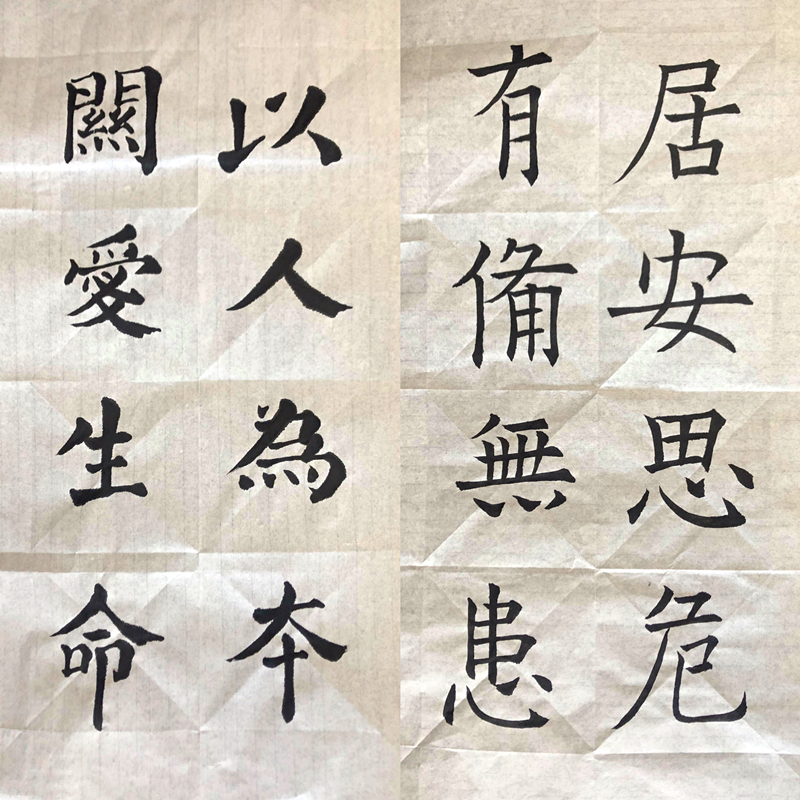 居安思危
有備無患
以人為本
關愛生命